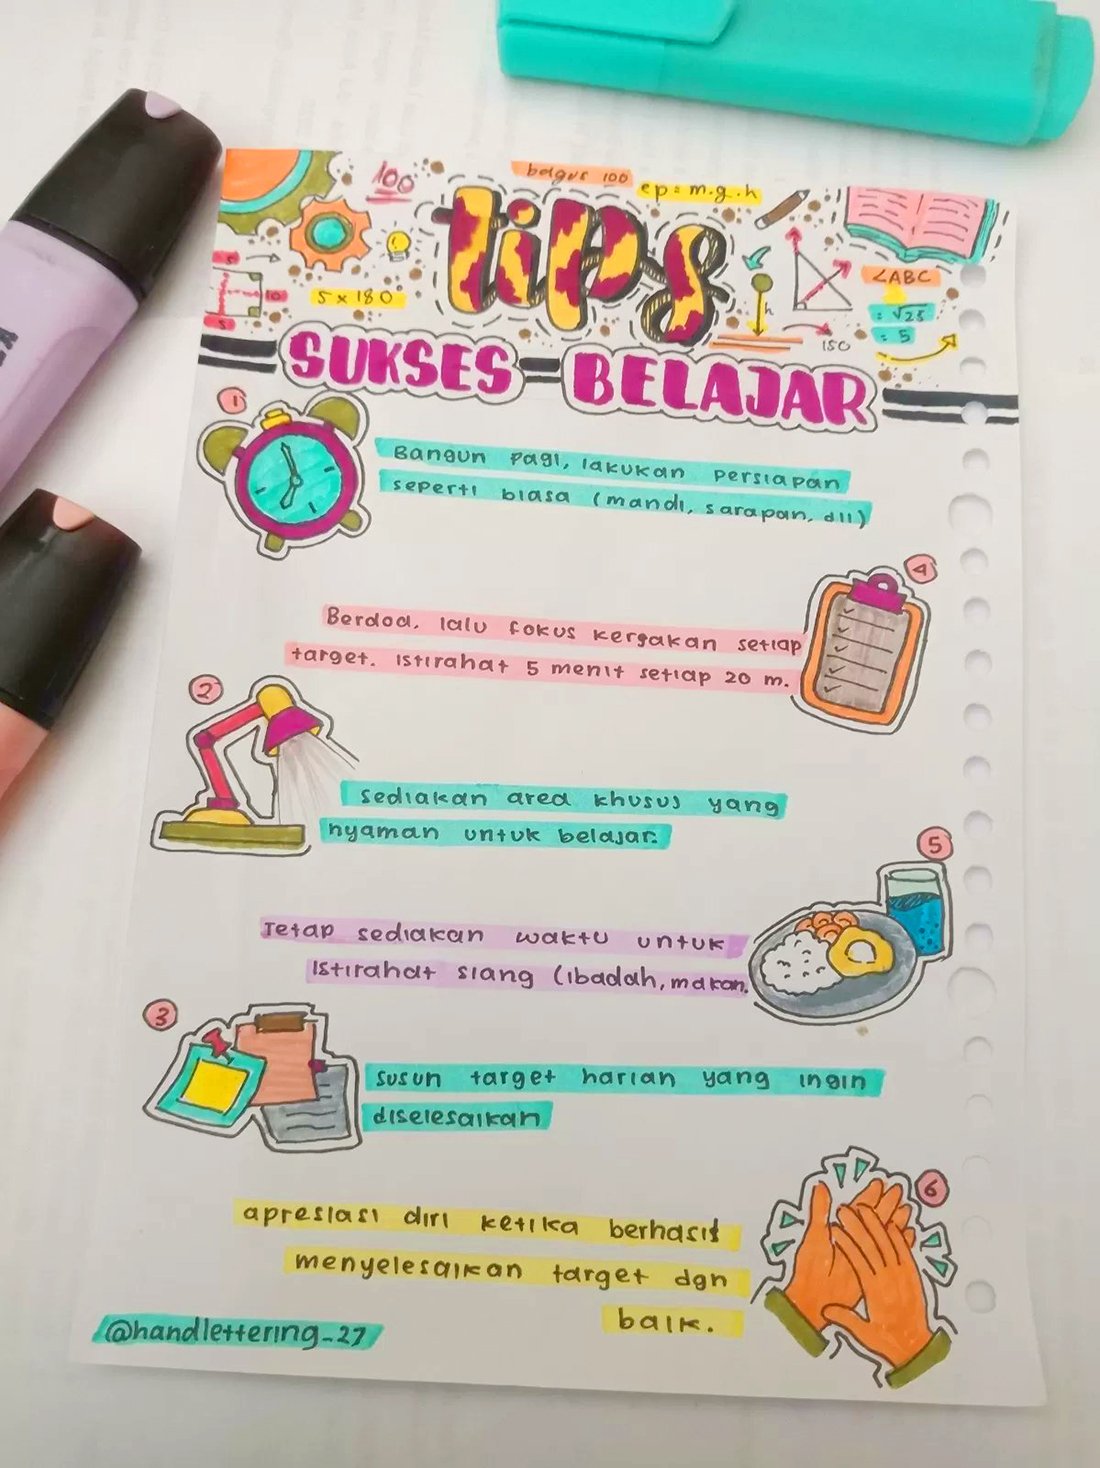 100
bagus 100
ep = m.g.h
tips
∠ABC
: √25
: 5
5
10
5
5 x 180
h
150
SUKSES BELAJAR
1
Bangun pagi, lakukan persiapan
seperti biasa (mandi, sarapan, dll)
4
Berdoa, lalu fokus kerjakan setiap
target. istirahat 5 menit setiap 20 m.
2
sediakan area khusus yang
nyaman untuk belajar.
5
Tetap sediakan waktu untuk
istirahat siang (ibadah, makan.
3
susun target harian yang ingin
diselesaikan
6
apresiasi diri ketika berhasil
menyelesaikan target dgn
baik.
@handlettering_27